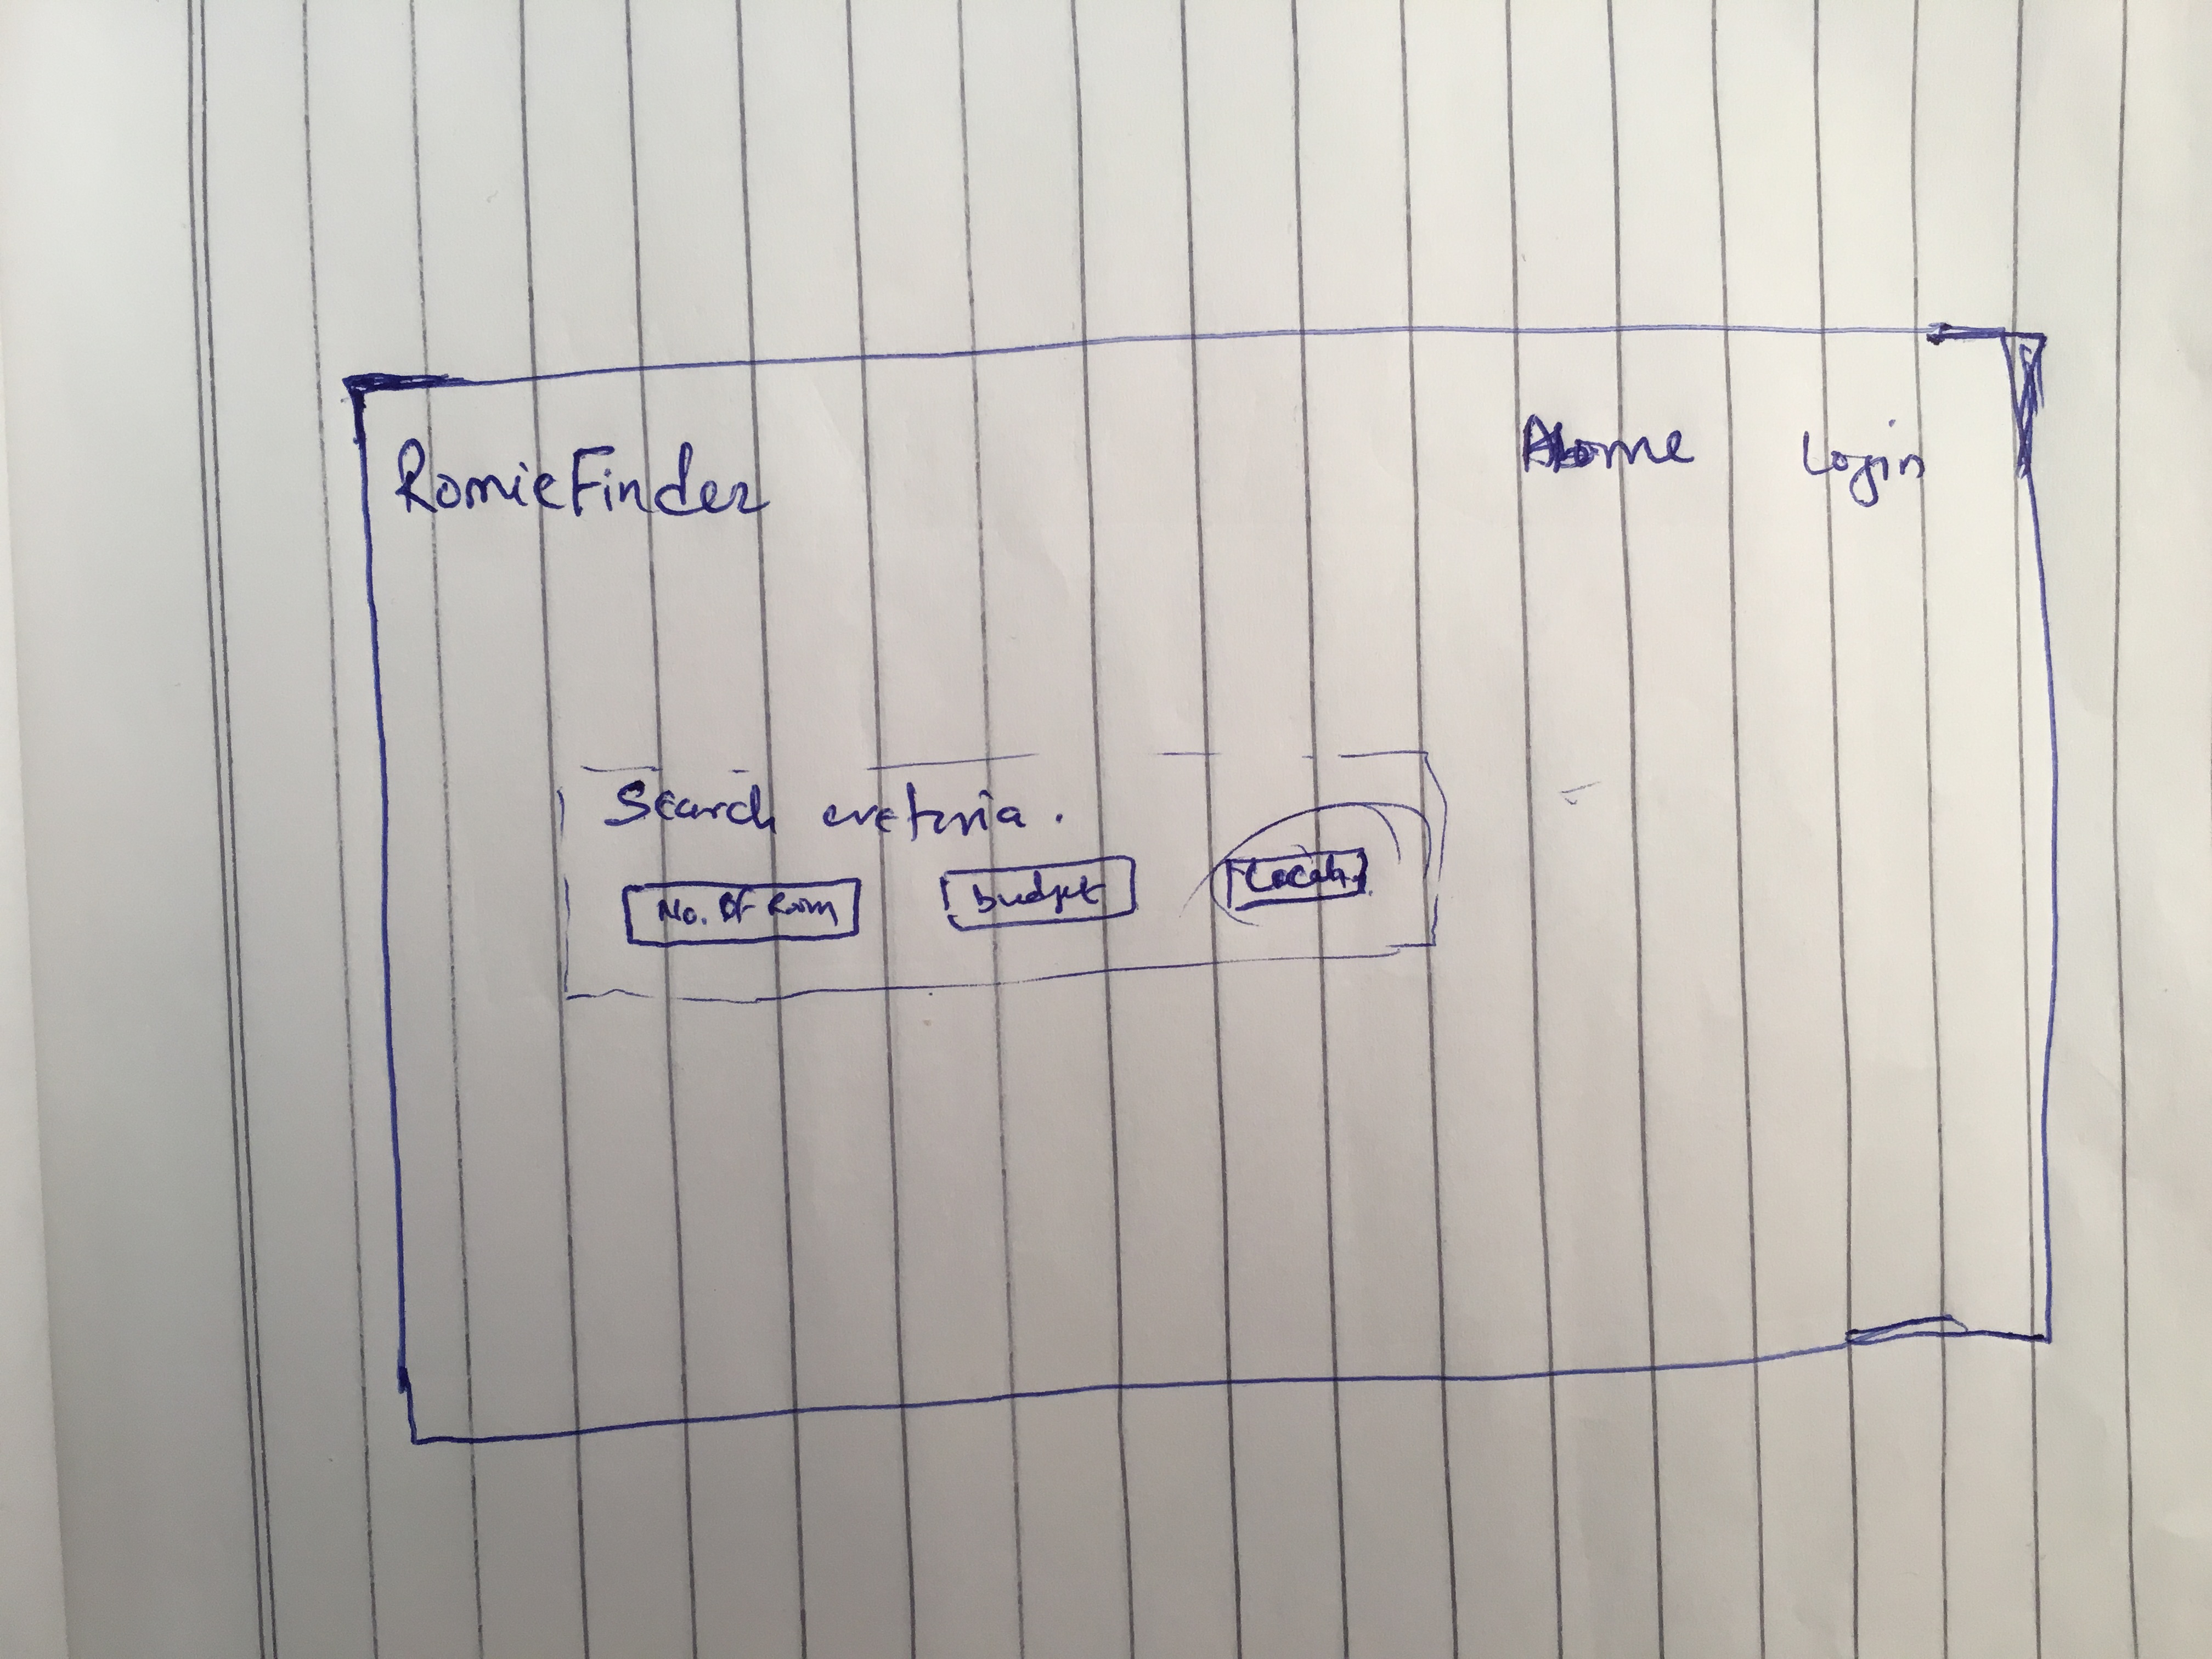 RomieFinder Home Login
Search cretria.
No. Of Room budget